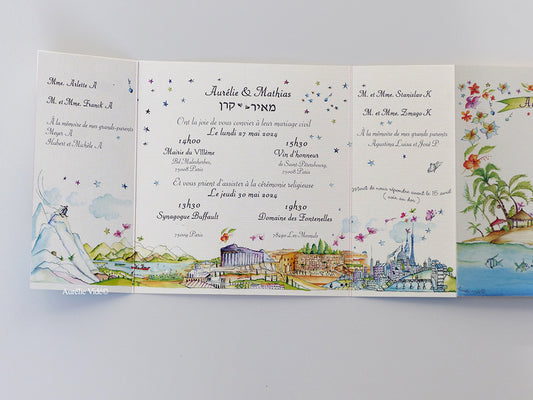 Mme. Arlette A
M. et Mme. Franck A
À la mémoire de mes grands-parents
Meyer A
Hubert et Michèle A
Aurélie & Mathias
מאיר קרן
Ont la joie de vous convier à leur mariage civil
Le lundi 27 mai 2024
14h00
Mairie du VIIIème
Bd Malesherbes,
75008 Paris
15h30
Vin d'honneur
de Saint-Pétersbourg,
75008 Paris
Et vous prient d'assister à la cérémonie religieuse
Le jeudi 30 mai 2024
13h30
Synagogue Buffault
75009 Paris
19h30
Domaine des Fontenelles
78490 Les-Mesnuls
M. et Mme. Stanislav K
M. et Mme. Zimago K
À la mémoire de mes grands-parents
Agustina Luisa et José P.
Merci de nous répondre avant le 15 avril
Aurélie Vidé©